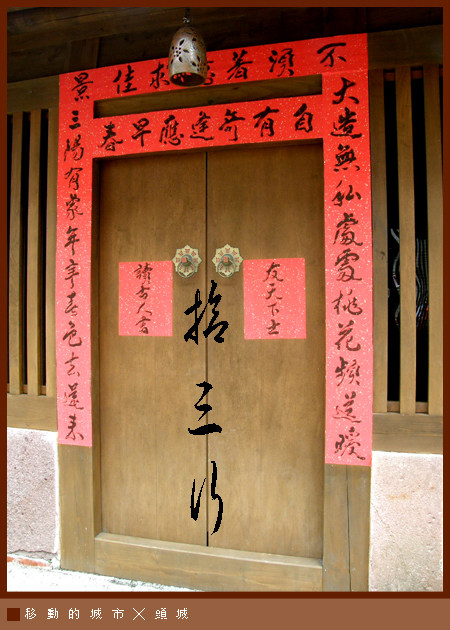 不須著意求佳景
自有奇逢應早春
大造無私處處桃花頻送暖
三陽有 年年春色去還來
友天下士
讀古人書
拾三行
移動的城市╳頭城